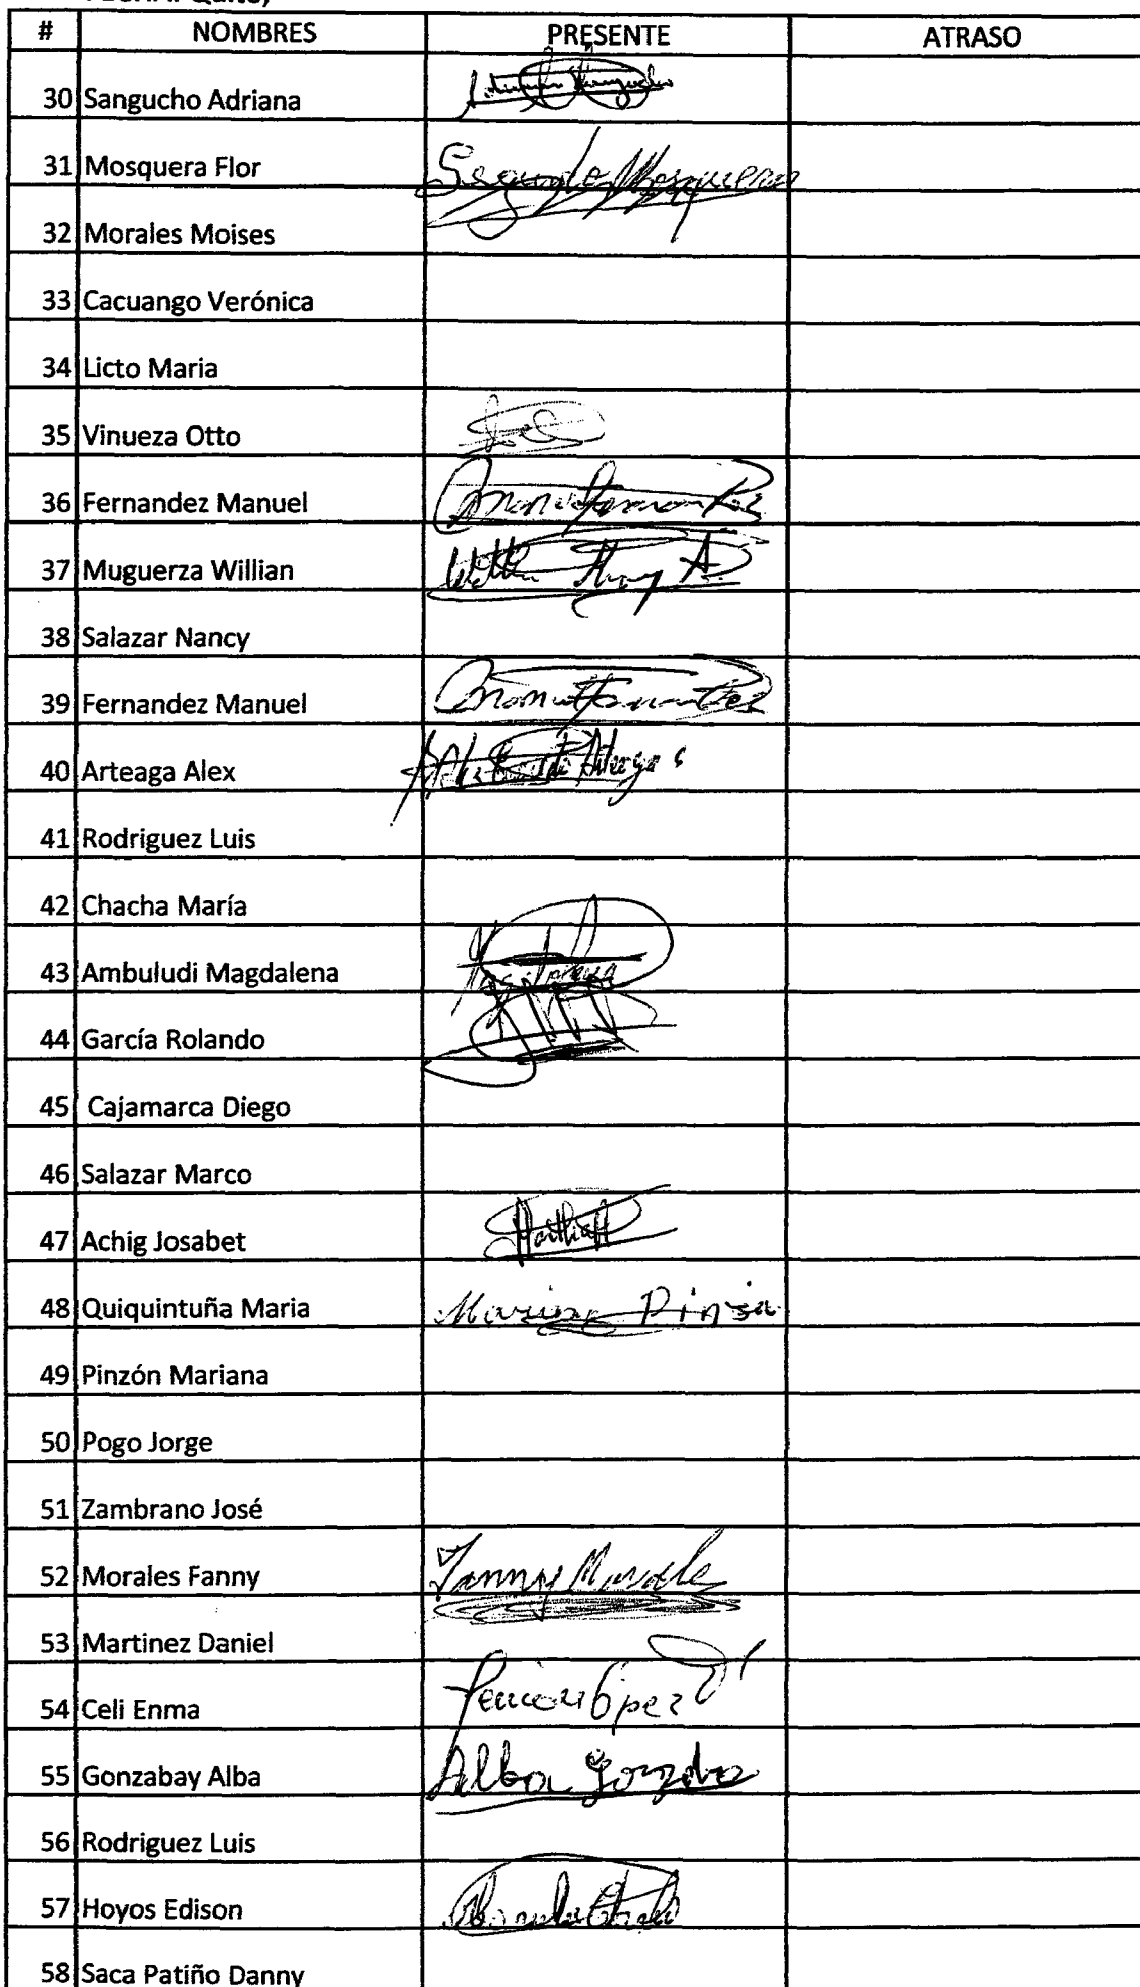 # NOMBRES PRESENTE ATRASO
30 Sangucho Adriana
31 Mosquera Flor Segundo Mosquera
32 Morales Moises
33 Cacuango Verónica
34 Licto Maria
35 Vinueza Otto
36 Fernandez Manuel Manuel Fernandez
37 Muguerza Willian
38 Salazar Nancy
39 Fernandez Manuel Manuel Fernandez
40 Arteaga Alex
41 Rodriguez Luis
42 Chacha María
43 Ambuludi Magdalena
44 García Rolando
45 Cajamarca Diego
46 Salazar Marco
47 Achig Josabet
48 Quiquintuña Maria
49 Pinzón Mariana
50 Pogo Jorge
51 Zambrano José
52 Morales Fanny Fanny Morales
53 Martinez Daniel
54 Celi Enma
55 Gonzabay Alba Alba
56 Rodriguez Luis
57 Hoyos Edison
58 Saca Patiño Danny